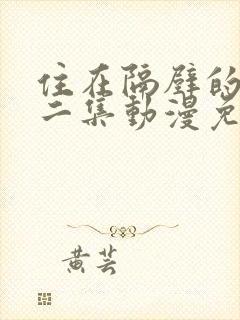 住在隔壁的
二集動漫免
黄芸